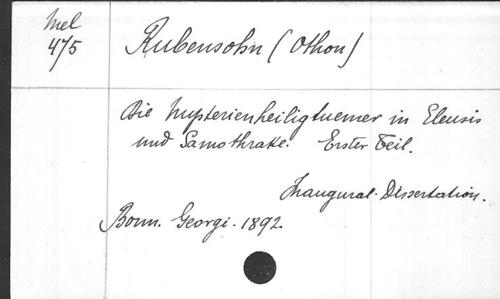 Mel
475
Rubensohn (Othon)
Die Mysterienheiligtuemer in Eleusis
und Samothrake. Erster Teil.
Inaugural-Dissertation.
Bonn. Georgi. 1892.